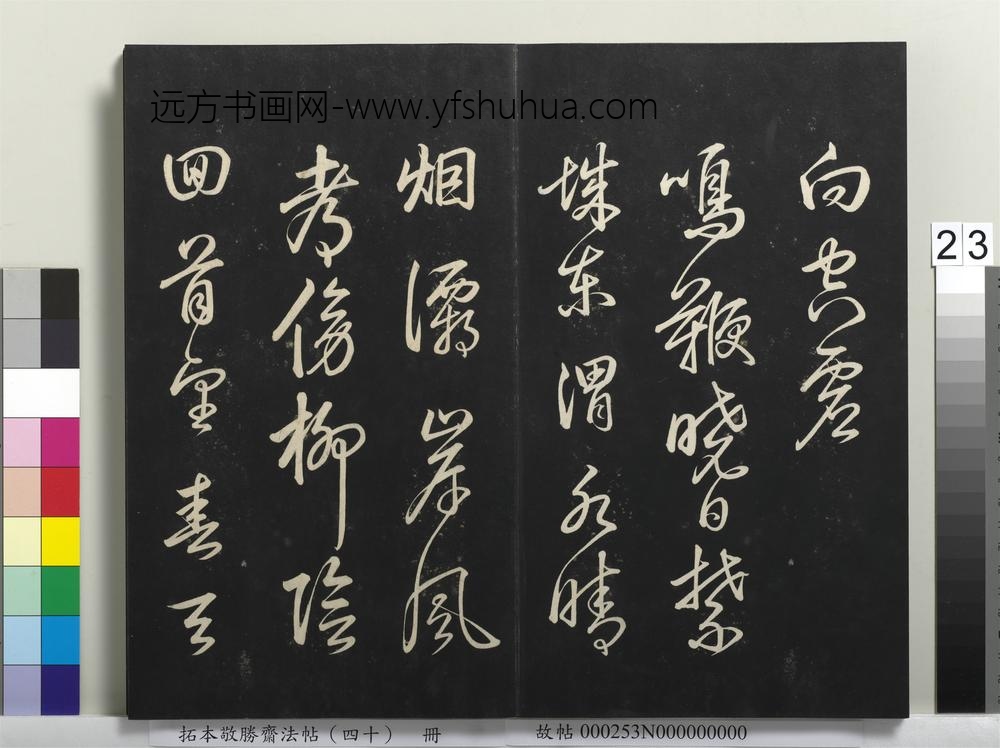 远方书画网-www.yfshuhua.com
向空虛
鳴鞭曉日禁
城東渭水晴
烟灞岸風
都傍柳陰
回首望春天
23
拓本敬勝齋法帖（四十） 冊
故帖 000253N000000000